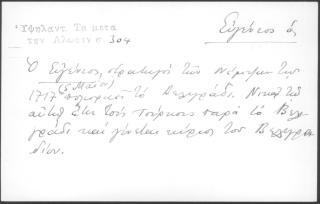 Ὑψηλαντ. Τα μετα
την Αλωσιν σ. 304
Εὐγένιος ὁ
Ὁ Εὐγένιος, στρατηγὸς τῶν Νέμτσων τῷ
1717 (5 Μαΐου) πολιορκεῖ τὸ Βελιγράδι. Νικᾷ τῷ
αὐτῷ ἔτει τοὺς Τούρκους παρὰ τὸ Βελι
γράδι καὶ γίνεται κύριος του Βελιγρα
δίου.